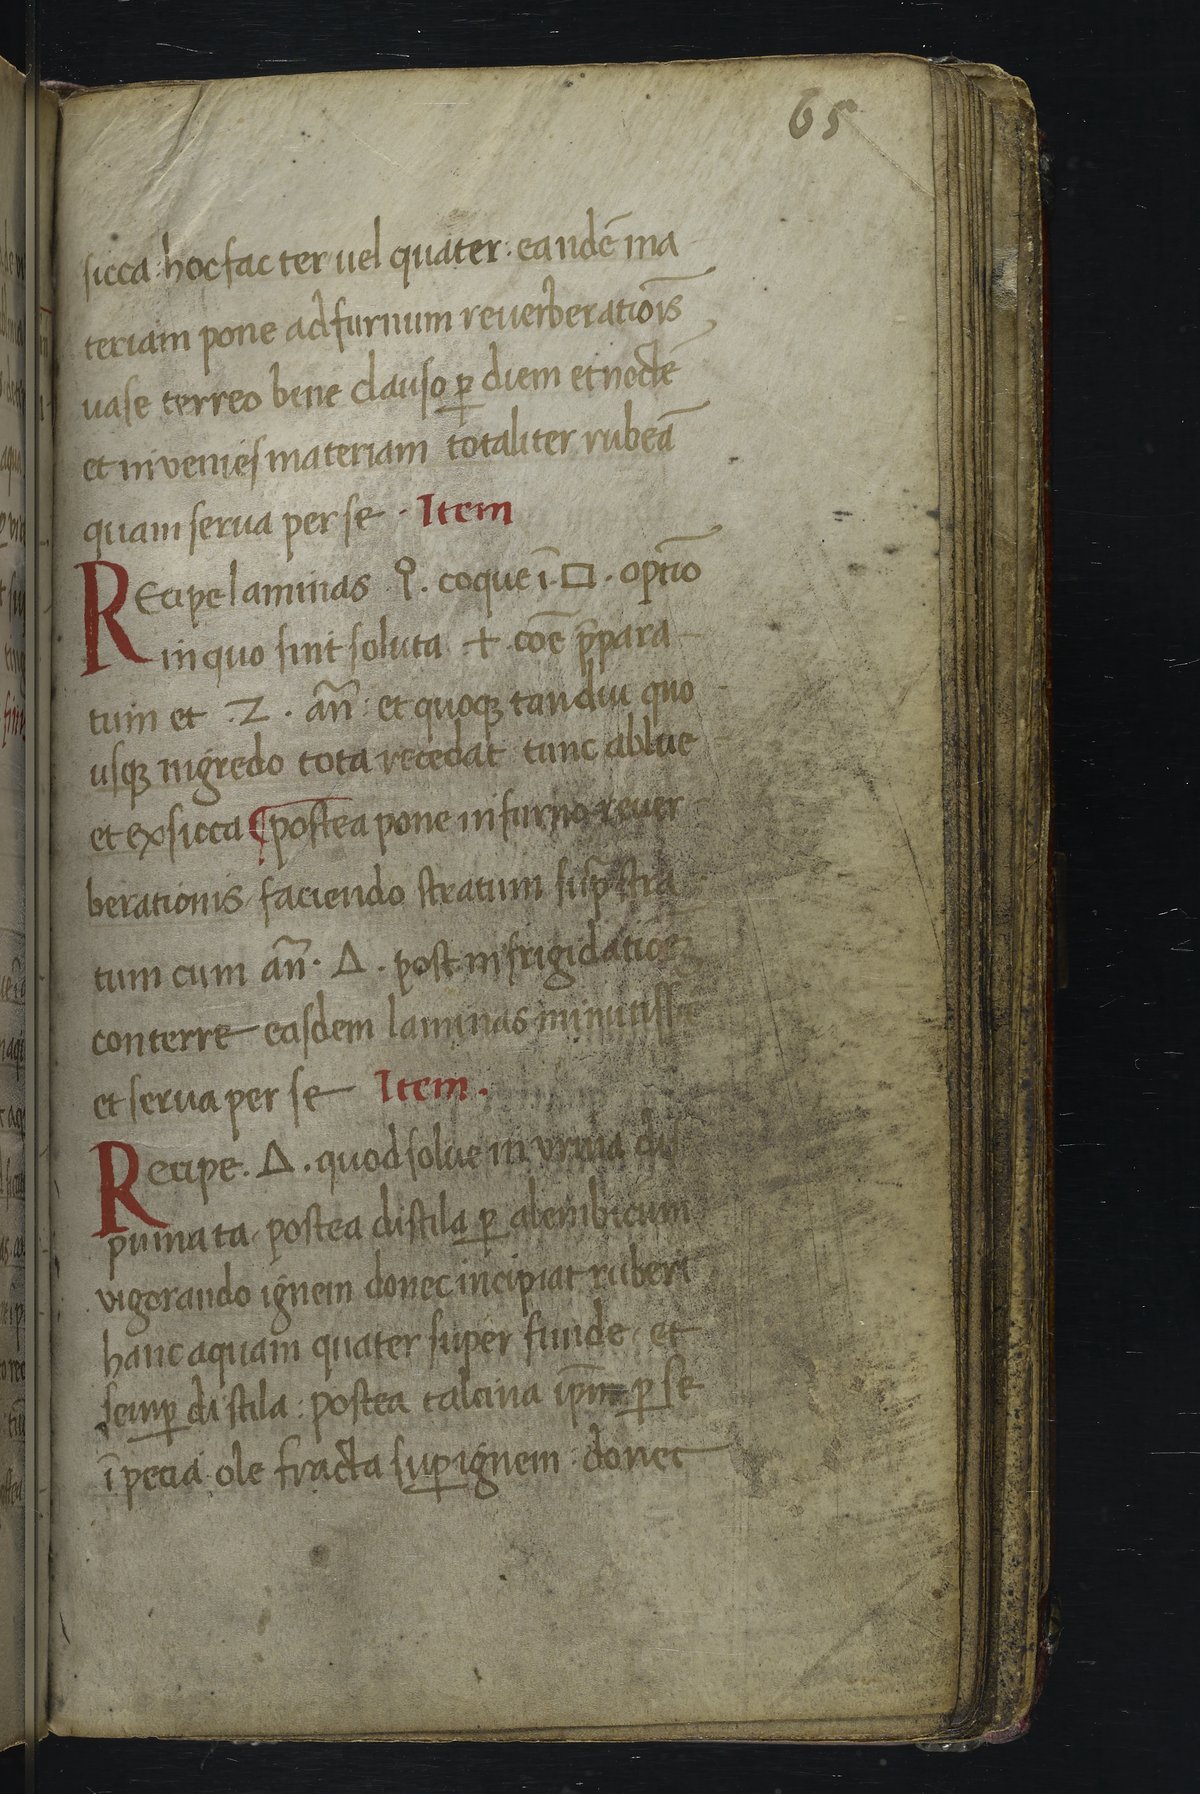 65
sicca · hoc fac ter uel quater · eandē ma
teriam pone ad furnum reuerberatiōis
uase terreo bene clauso ꝑ diem et noctē
et invenies materiam totaliter rubeā
quam serua per se · Item
REcipe laminas ♀ · coque ī · □ · optīo
in quo sint soluta · + · coē p̄para
tum et · Z · añ · et quoqꝫ tandiu quo
usqꝫ nigredo tota recedat tunc ablue
et exsicca ¶ postea pone in furno reuer
berationis faciendo stratum suꝑ stra
tum cum añ · Δ · post infrigidatioēꝫ
conterre easdem laminas minutissīe
et serua per se Item ·
Recipe · Δ · quod solue in vrina dis
pumata · postea distila ꝑ alembicum
vigorando ignem donec incipiat ruberi
hanc aquam quater super funde · et
semꝑ distila : postea calcina ip̄m ꝑ se
ī pecia ole fracta suꝑ ignem · donec